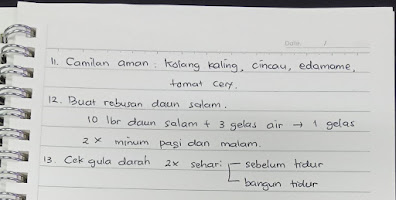 Date. /
11. Camilan aman : Kolang kaling, cincau, edamame,
tomat cery.
12. Buat rebusan daun salam.
10 lbr daun salam + 3 gelas air → 1 gelas
2 x minum pagi dan malam.
13. Cek gula darah 2x sehari sebelum tidur
bangun tidur